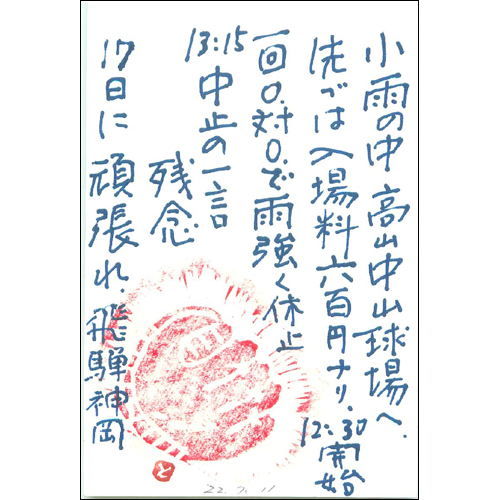 小雨の中高山中山球場へ.
先づは入場料六百円ナリ.12:30開始
一回0.対0.で雨強く休止
13:15中止の一言
残念
17日に頑張れ.飛騨神岡
と
22.7.11